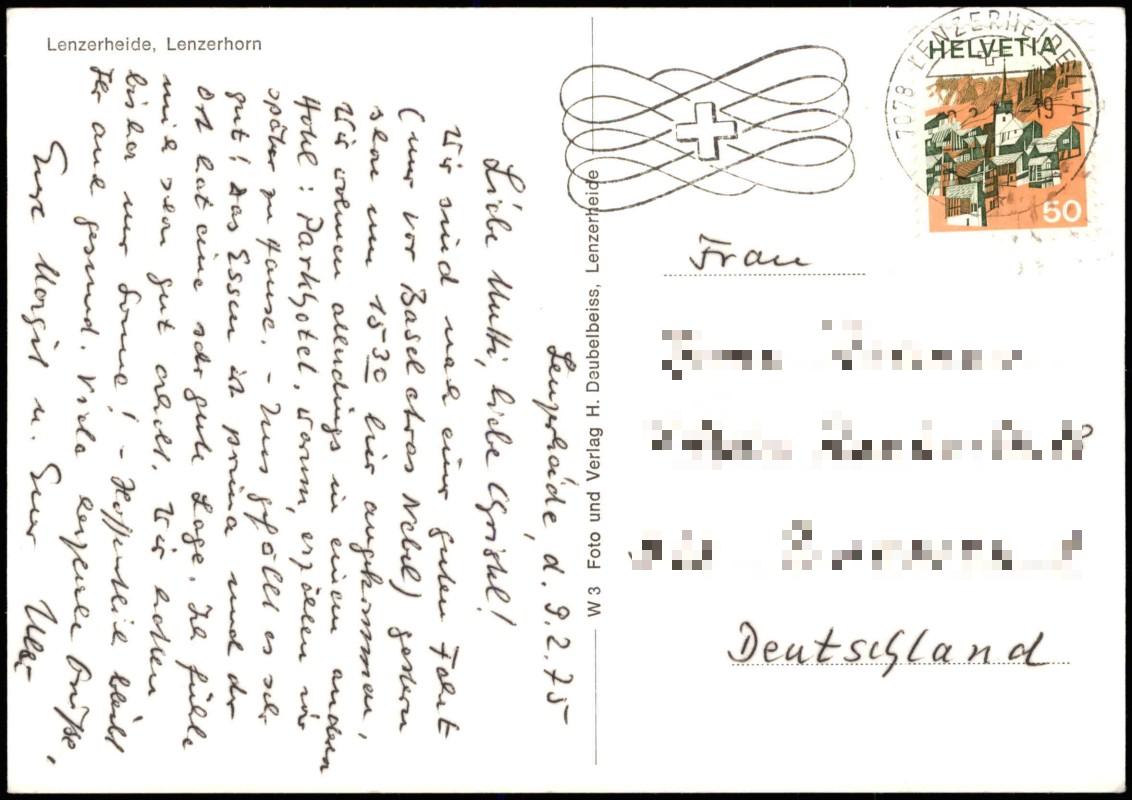 Lenzerheide, Lenzerhorn
Lenzerheide, d. 9.2.75
Liebe Mutti, liebe Christel!
Wir sind nach einer guten Fahrt
(nur vor Basel etwas Nebel) gestern
schon um 15³⁰ hier angekommen,
Wir wohnen allerdings in einem anderen
Hotel: Parkhotel. Warum, erzählen wir
später zu Hause. - Uns gefällt es sehr
gut! Das Essen ist prima und der
Ort hat eine sehr gute Lage. Ich fühle
mich schon gut erholt. Wir hatten
bisher nur Sonne! - Hoffentlich bleibt
Ihr auch gesund. Viele herzliche Grüße,
Eure Margit u. Euer
W 3 Foto und Verlag H. Deubelbeiss, Lenzerheide
7078 LENZERHEIDE/LAI
HELVETIA
50
Frau
Deutschland